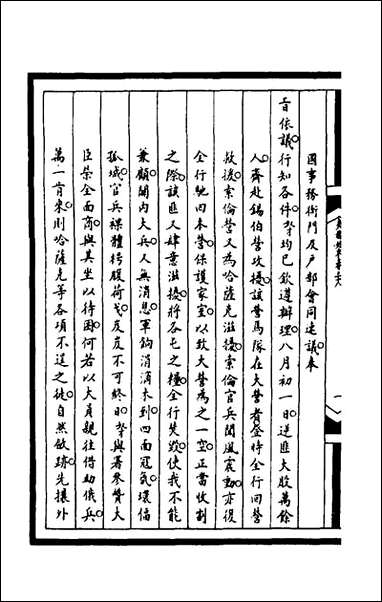 國事務衙門及戶部會同速議奏
旨依議行知各件奴才均已欽遵辦理八月初一日逆匪大股萬餘
人齊赴錫伯營攻擾該營馬隊在大營者登時全行回營
救援索倫營又為哈薩克滋擾索倫官兵聞風震動亦復
全行馳回本營保護家室以致大營為之一空正當收割
之際該匪又肆意滋擾將各屯之糧全行失毀使我不能
兼顧關內大兵人無消息軍餉涓滴未到四面寇氛環偪
孤城官兵裸體枵腹荷戈岌岌不可終日奴才與署參贊大
臣榮全面商與其坐以待困何若以大員親往借助俄兵
萬一肯來則哈薩克等各項不逞之徒自然斂跡先攘外